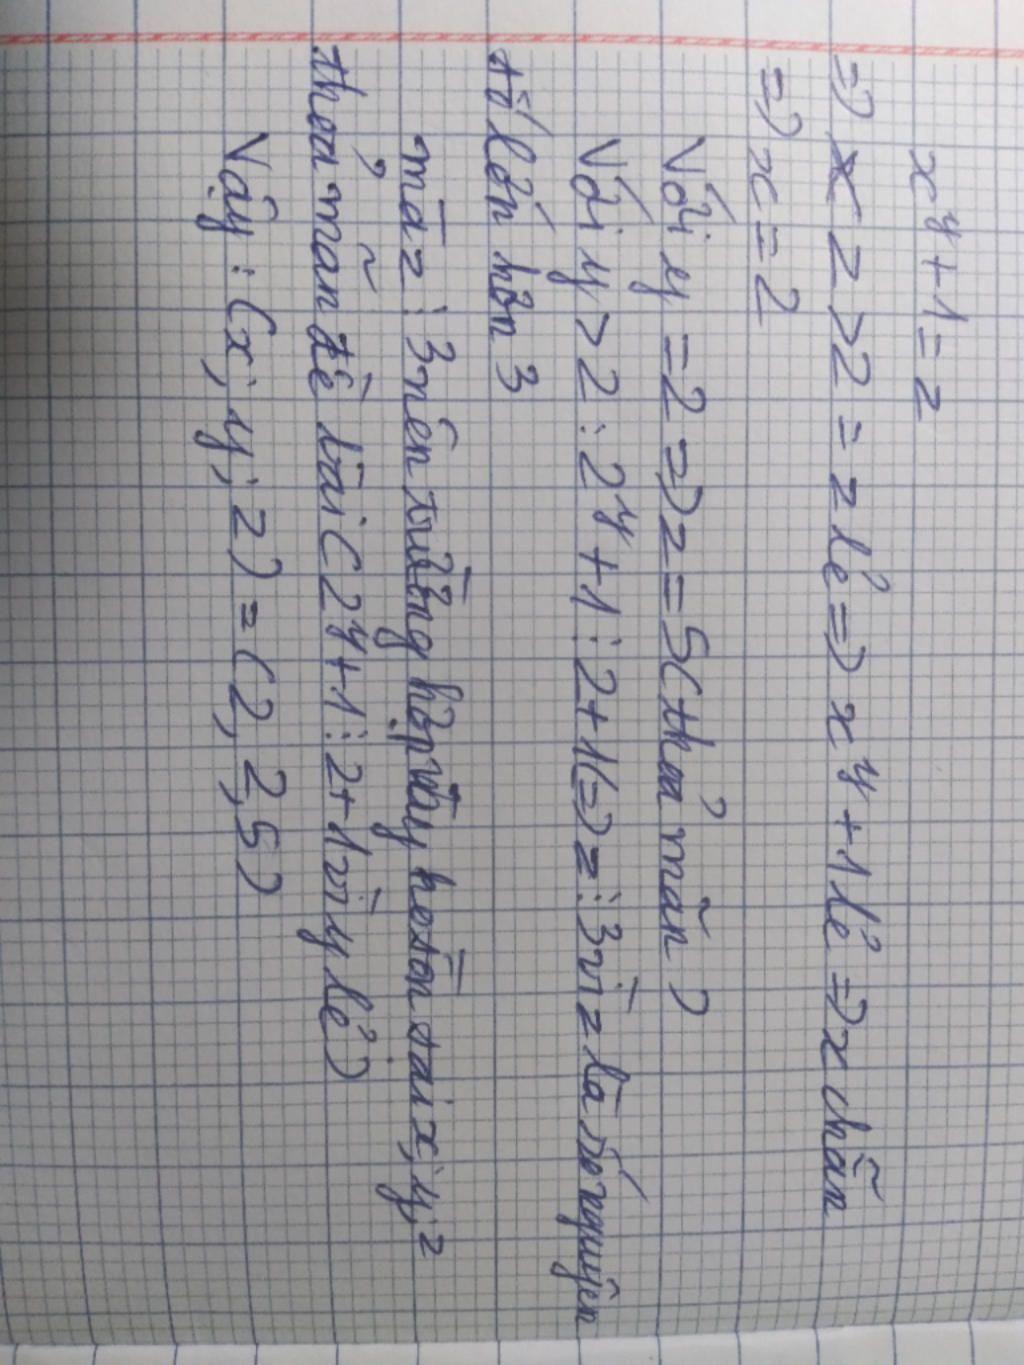 x^y + 1 = z
=) x z > 2 = z lẻ =) x^y + 1 lẻ =) x chẵn
=) x = 2
Với y = 2 =) z = 5 (thoả mãn)
Với y > 2 : 2^y + 1 ⋮ 2 + 1 (=) z ⋮ 3 vì z là số nguyên
tố lớn hơn 3
mà z ⋮ 3 nên trường hợp này hotồn tại x, y, z
thoả mãn đề bài (2^y + 1 ⋮ 2 + 1 vì y lẻ)
Vậy : (x; y; z) = (2, 2, 5)